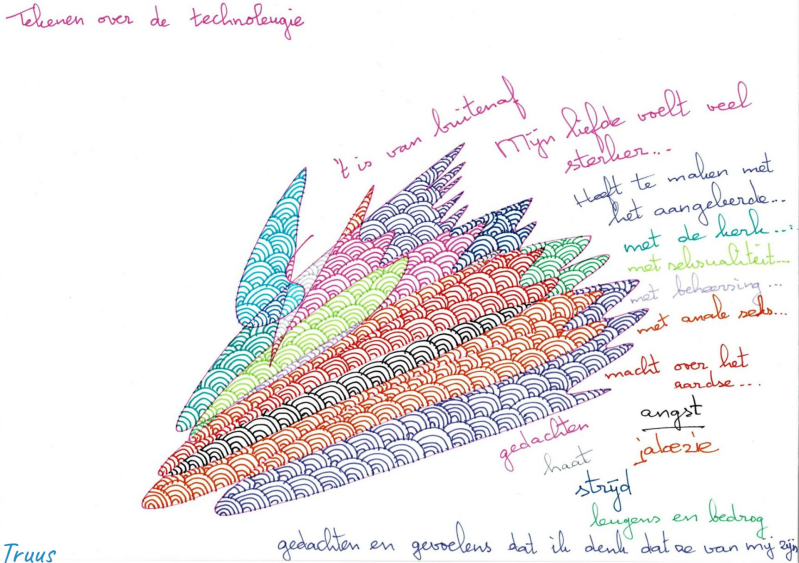 Tekenen over de technoleugie
't is van buitenaf
Mijn liefde voelt veel
sterker...
Heeft te maken met
het aangeleerde...
met de kerk...
met seksualiteit...
met beheersing...
met anale seks...
macht over het
aardse...
angst
jaloezie
gedachten
haat
strijd
leugens en bedrog
gedachten en gevoelens dat ik denk dat ze van mij zijn
Truus